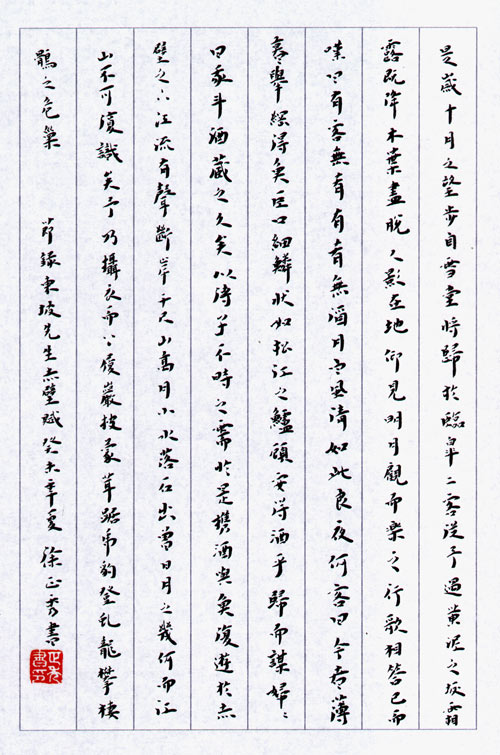 是歲十月之望步自雪堂將歸於臨皋二客從予過黃泥之坂霜
露既降木葉盡脫人影在地仰見明月顧而樂之行歌相答已而
嘆曰有客無肴有肴無酒月白風清如此良夜何客曰今者薄
暮舉網得魚巨口細鱗狀如松江之鱸顧安得酒乎歸而謀婦〻
曰我斗酒藏之久矣以待子不時之需於是攜酒與魚復遊於赤
壁之下江流有聲斷岸千尺山高月小水落石出曾日月之幾何而江
山不可復識矣予乃攝衣而上履巖披蒙茸踞虎豹登虬龍攀棲
鶻之危巢 節錄東坡先生赤壁賦癸未年夏 徐正秀書